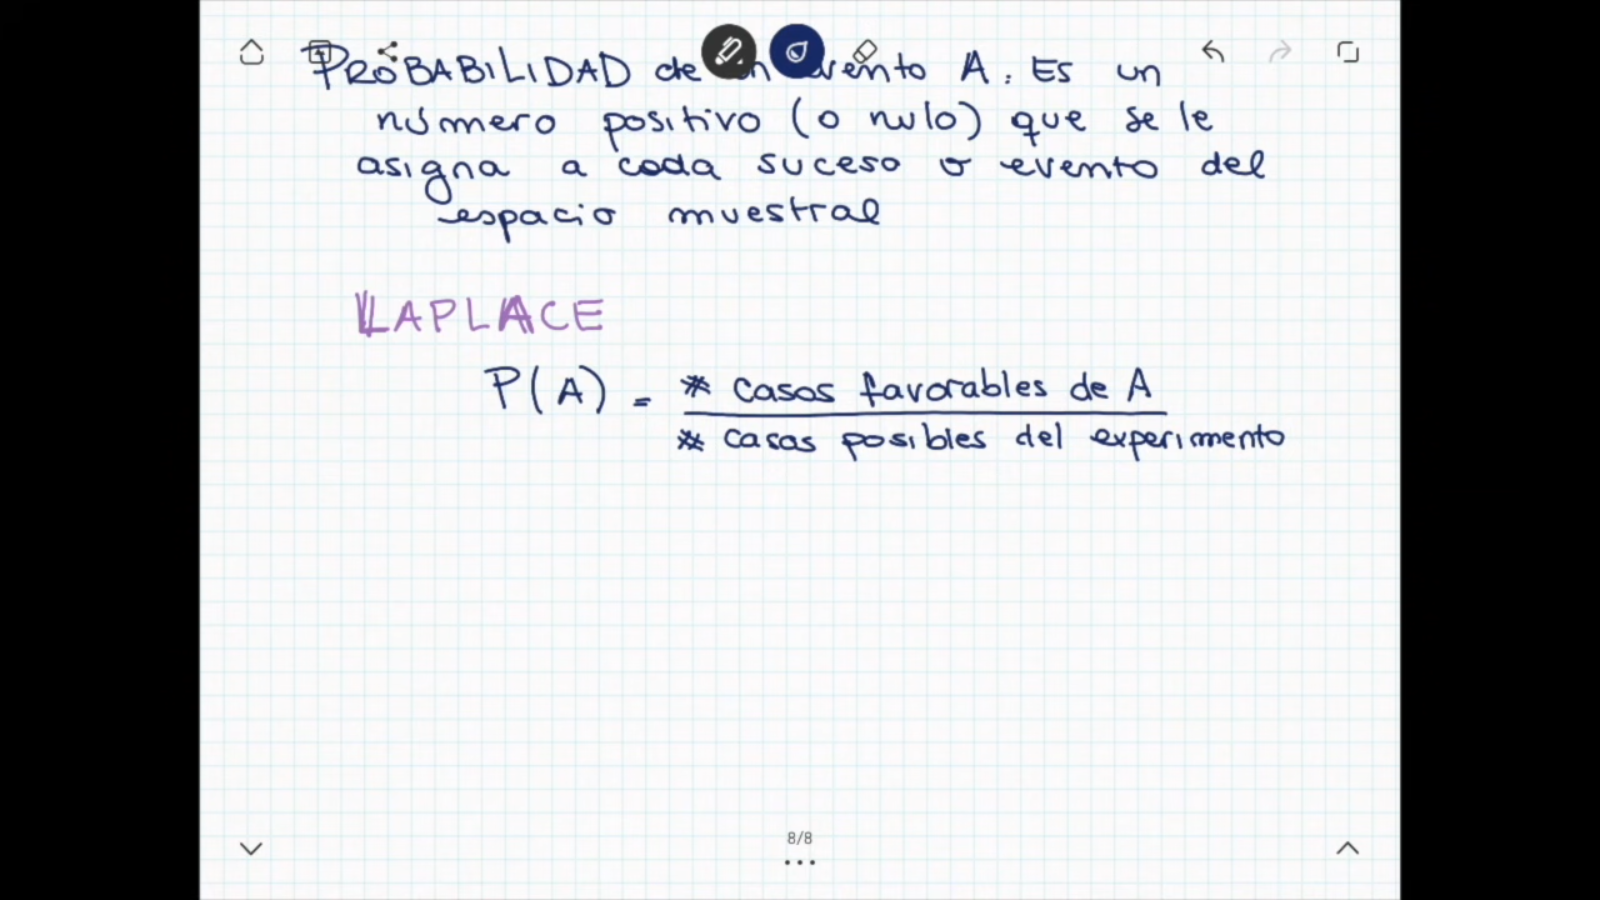 PROBABILIDAD de un evento A: Es un
número positivo (o nulo) que se le
asigna a cada suceso o evento del
espacio muestral
LAPLACE
P(A) = # casos favorables de A
# casos posibles del experimento
8/8